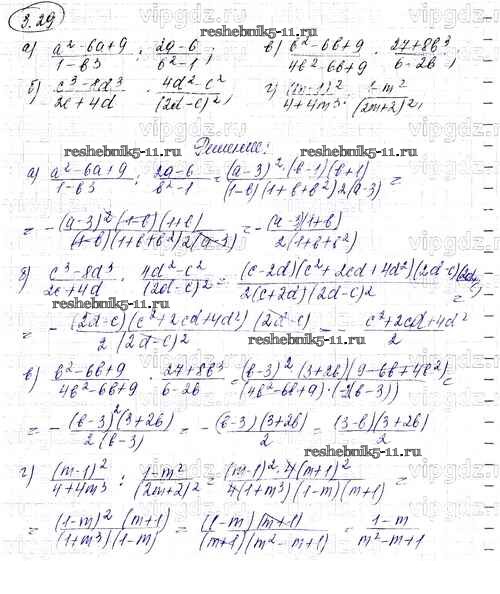 3.29
а) (a²-6a+9)/(1-b³) : (2a-6)/(b²-1); в) (b²-6b+9)/(4b²-6b+9) · (27+8b³)/(6-2b);
б) (c³-8d³)/(2c+4d) · (4d²-c²)/(2d-c)²; г) (m-1)²/(4+4m³) : (1-m²)/(2m+2)²;
reshebnik5-11.ru
Решение:
reshebnik5-11.ru
а) (a²-6a+9)/(1-b³) : (2a-6)/(b²-1) = (a-3)²(b-1)(b+1)/((1-b)(1+b+b²)2(a-3)) =
= -(a-3)²(1-b)(1+b)/((1-b)(1+b+b²)2(a-3)) = -(a-3)(1+b)/(2(1+b+b²))
б) (c³-8d³)/(2c+4d) · (4d²-c²)/(2d-c)² = (c-2d)(c²+2cd+4d²)(2d-c)/(2(c+2d)(2d-c)²) =
= -(2d-c)(c²+2cd+4d²)(2d-c)/(2(2d-c)²) = -(c²+2cd+4d²)/2
в) (b²-6b+9)/(4b²-6b+9) · (27+8b³)/(6-2b) = (b-3)²(3+2b)(9-6b+4b²)/((4b²-6b+9)·(-2(b-3))) =
= -(b-3)²(3+2b)/(2(b-3)) = -(b-3)(3+2b)/2 = (3-b)(3+2b)/2
г) (m-1)²/(4+4m³) : (1-m²)/(2m+2)² = (m-1)²·4(m+1)²/(4(1+m³)(1-m)(m+1)) =
= (1-m)²(m+1)/((1+m³)(1-m)) = (1-m)(m+1)/((m+1)(m²-m+1)) = (1-m)/(m²-m+1)